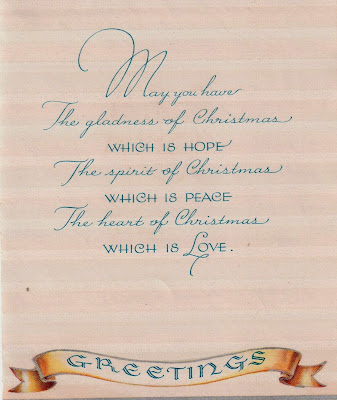 May you have
The gladness of Christmas
WHICH IS HOPE
The spirit of Christmas
WHICH IS PEACE
The heart of Christmas
WHICH IS LOVE.
GREETINGS